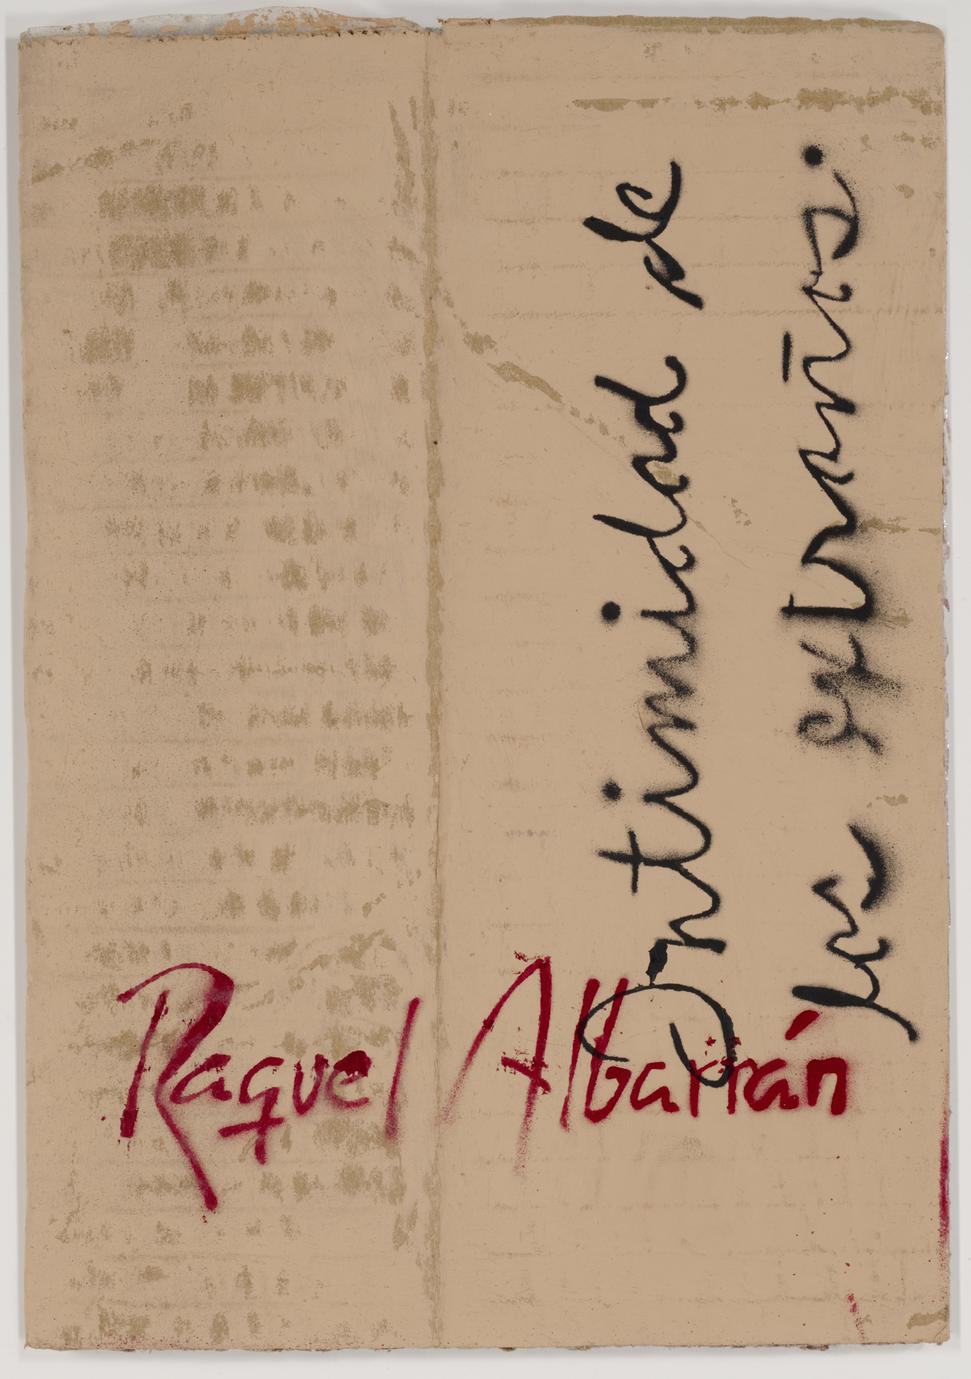 Raquel Albarrán
Intimidad de
los extraños.